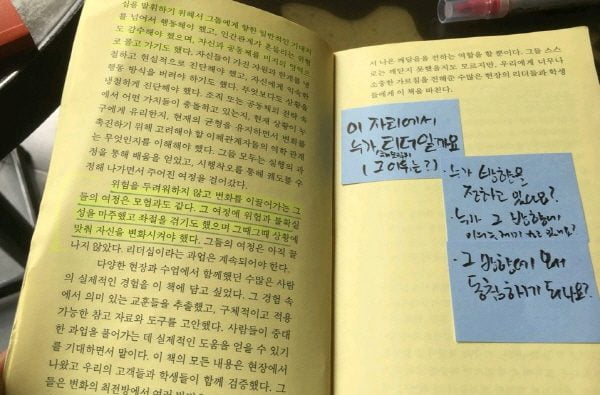 심을 발휘하기 위해서 그들에게 향한 일반적인 기대치
를 넘어서 행동해야 했고, 인간관계가 흔들리는 위험
도 감수해야 했으며, 자신과 공동체를 미지의 영역으
로 몰고 가기도 했다. 자신들이 가진 자원과 한계를 냉
철하고 현실적으로 진단해야 했고, 자신에게 익숙한
행동 방식을 버려야 하기도 했다. 무엇보다도 상황을
냉철하게 진단해야 했다. 조직 또는 공동체의 진짜 속
에서 어떤 가치들이 충돌하고 있는지, 현재 상황이 누
구에게 유리한지, 현재의 균형을 유지하면서 변화를
촉진하기 위해 고려해야 할 이해관계자들의 역학 관계
는 무엇인지를 이해해야 했다. 그들 모두는 실행의 과
정을 통해 배움을 얻었고, 시행착오를 통해 궤도를 수
정해 나가면서 주어진 여정을 걸어갔다.
위험을 두려워하지 않고 변화를 이끌어가는 그
들의 여정은 모험과도 같다. 그 여정에 위험과 불확실
성을 마주했고 좌절을 겪기도 했으며 그때그때 상황에
맞춰 자신을 변화시켜야 했다. 그들의 여정은 아직 끝
나지 않았다. 리더십이라는 과업은 계속되어야 한다.
다양한 현장과 수업에서 함께했던 수많은 사람
의 실제적인 경험을 이 책에 담고 싶었다. 그 경험 속
에서 의미 있는 교훈들을 추출했고, 구체적이고 적용
가능한 참고 자료와 도구를 고안했다. 사람들이 중대
한 과업을 풀어가는 데 실제적인 도움을 얻을 수 있기
를 기대하면서 말이다. 이 책의 모든 내용은 현장에서
나왔고 우리의 고객들과 학생들이 함께 검증했다. 그
들은 변화의 최전방에서 여러
저 나온 깨달음을 전하는 역할을 할 뿐이다. 그들 스스
로는 깨닫지 못했을지도 모르지만, 우리에게 너무나
소중한 가르침을 전해준 수많은 현장의 리더들과 학생
들에게 이 책을 바친다.
이 자리에서
누가 리더일까요
(그 이유는?)
· 누가 방향을
정하고 있나요?
· 누가 그 방향에
· 그 방향에 왜
동참하게 되나요?